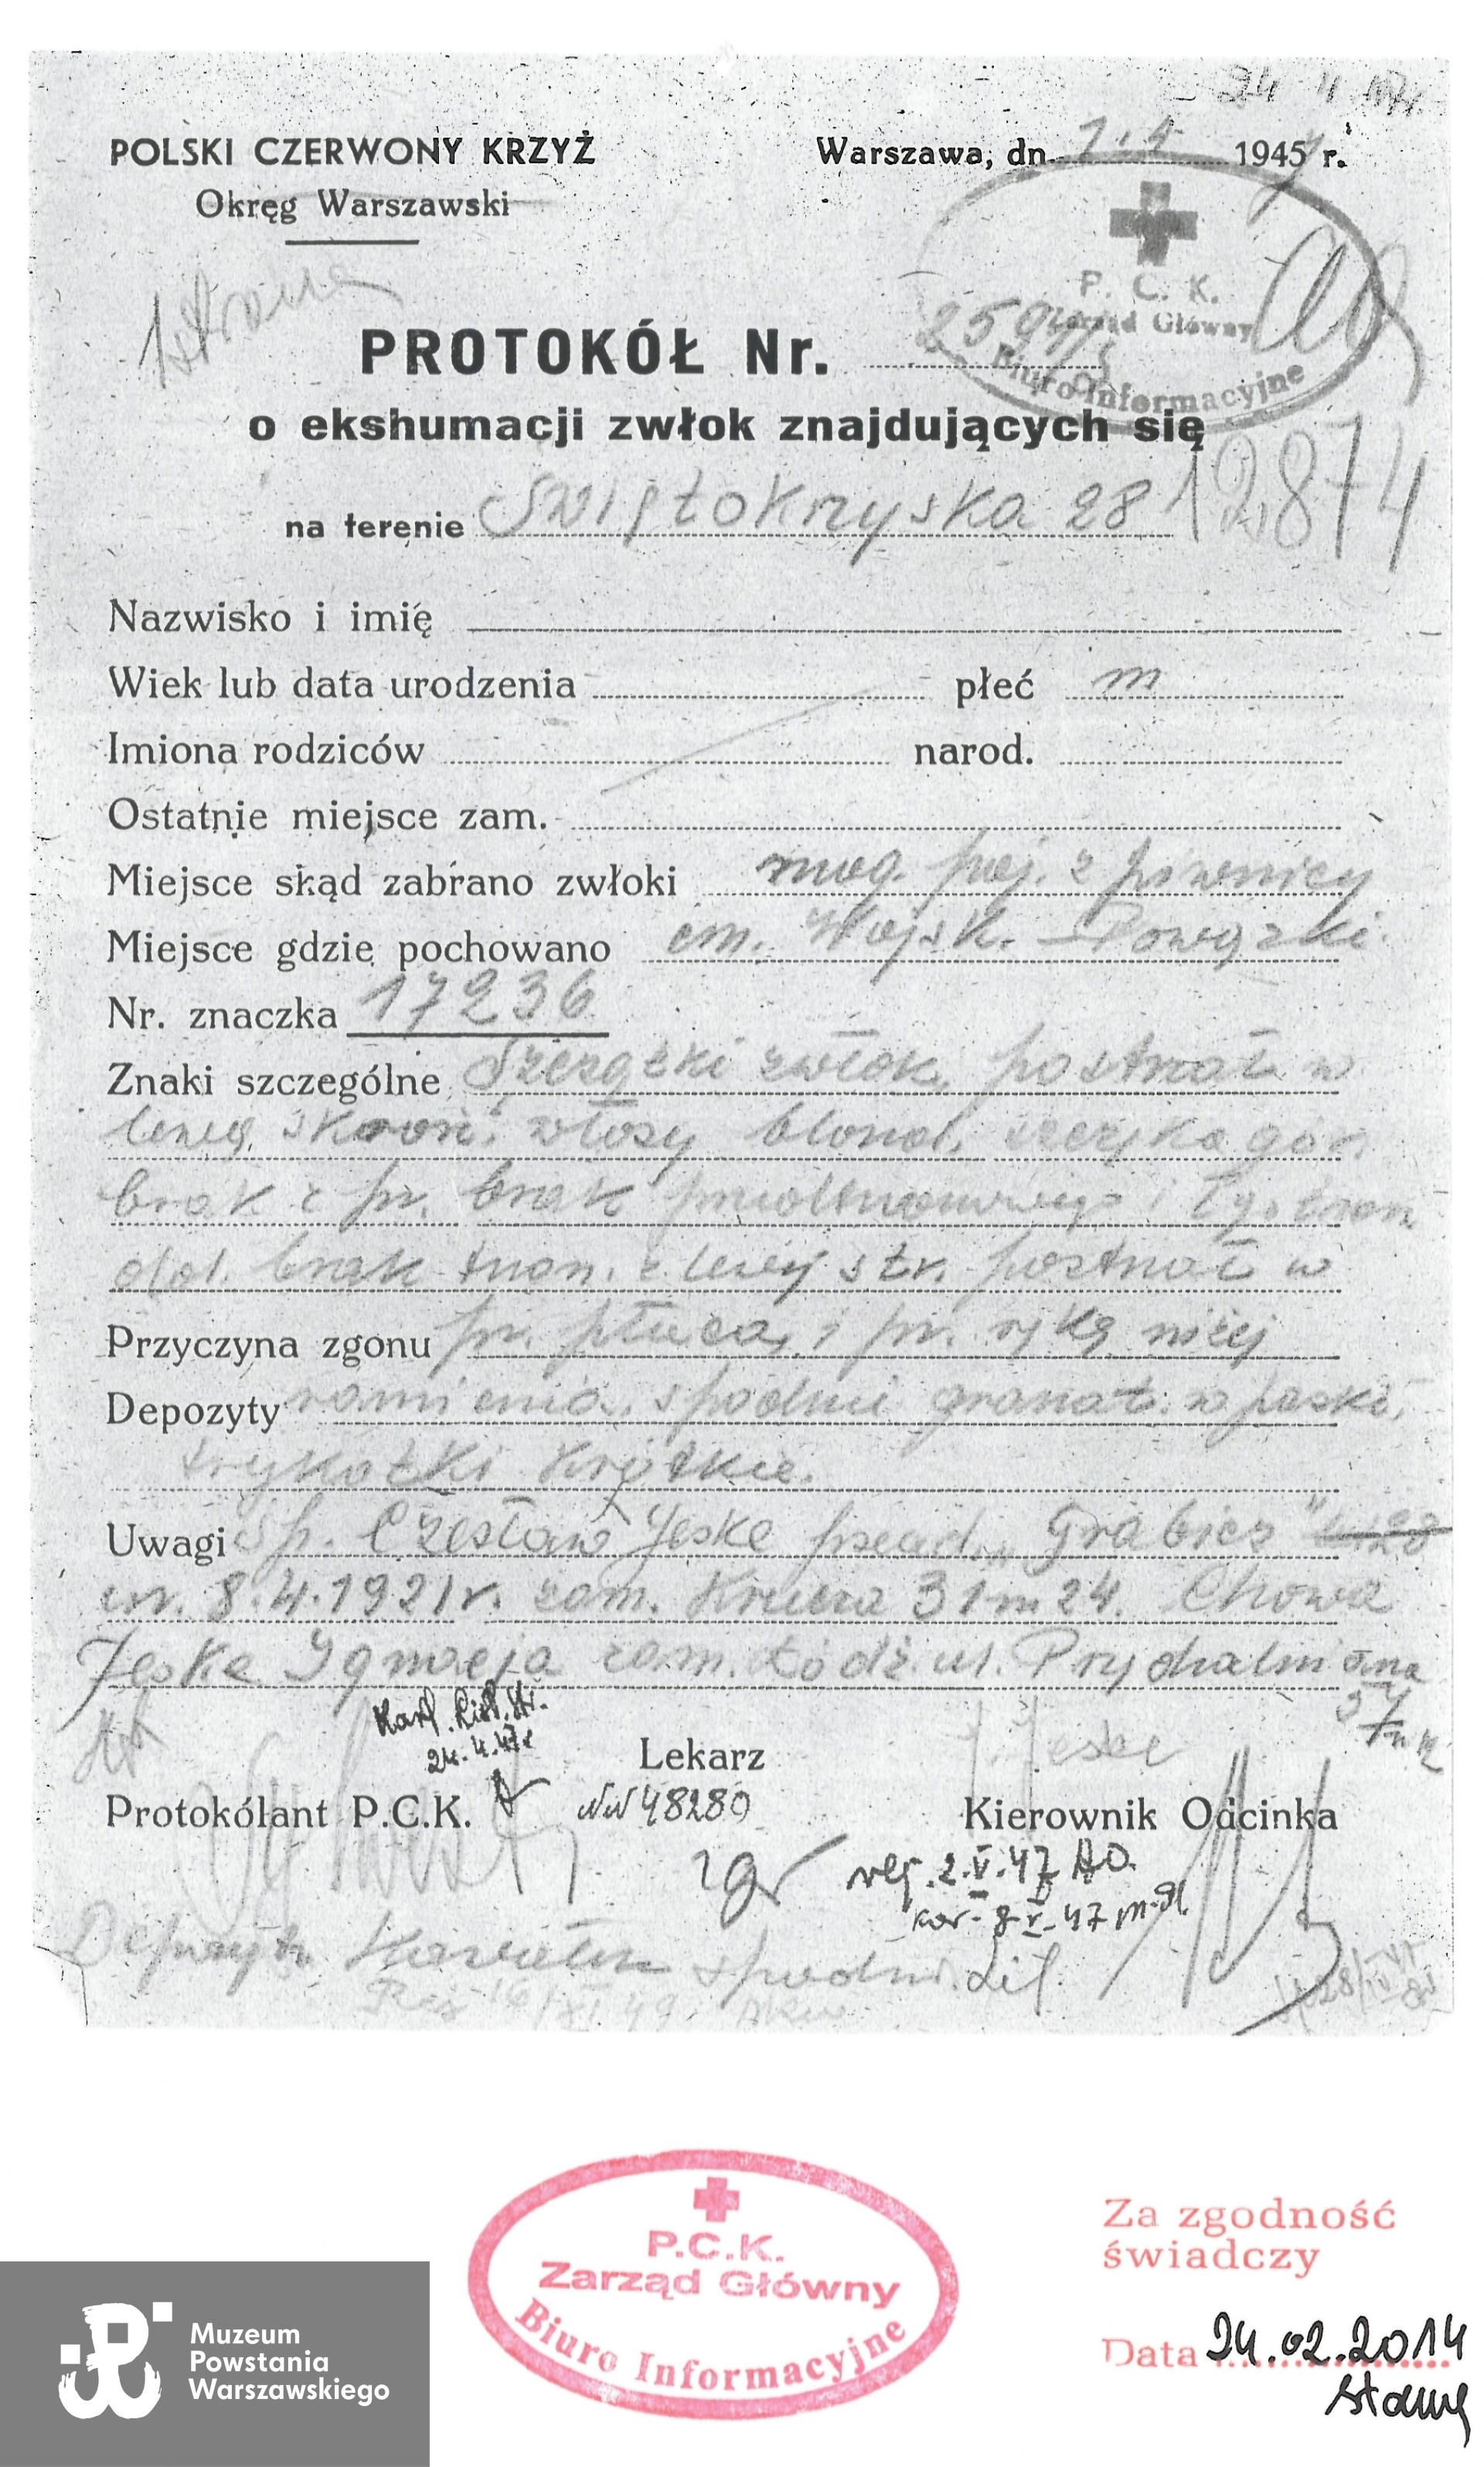 24 4 194
POLSKI CZERWONY KRZYŻ
Warszawa, dn. 1.4 1947 r.
Okręg Warszawski
P. C. K.
Zarząd Główny
Biuro Informacyjne
PROTOKÓŁ Nr.
o ekshumacji zwłok znajdujących się
na terenie Świętokrzyska 28
12874
Nazwisko i imię
Wiek lub data urodzenia płeć m
Imiona rodziców narod.
Ostatnie miejsce zam.
Miejsce skąd zabrano zwłoki mog. poj. z piwnicy
Miejsce gdzie pochowano cm. Wojsk. – Powązki.
Nr. znaczka 17236
Znaki szczególne Szczątki zwłok, postrzał w
lewą skroń, włosy blond, szczęka gór.
brak z pr. brak przedtrzonowego i tyl. trzon
dol. brak trzon. z lewej str. postrzał w
Przyczyna zgonu pr. płuca, i pr. rękę niżej
Depozyty ramienia, spodnie granat. w paski,
trykotki krótkie.
Uwagi Śp. Czesław Jeske pseud. „Grabicz"
ur. 8.4.1921 r. zam. Krucza 31 m 24. Chowa
Jeske Ignacja zam. Łódź ul. Przędzalniana
Kart.
24.4.47r
J. Jeske
Lekarz
Protokólant P.C.K.
NN 48280
Kierownik Odcinka
rej. 2.V.47 AD.
kor - 8-V-47
Depozyt: Kawałek spodni.
P.C.K.
Zarząd Główny
Biuro Informacyjne
Za zgodność
świadczy
Data 24.02.2014
Muzeum
Powstania
Warszawskiego